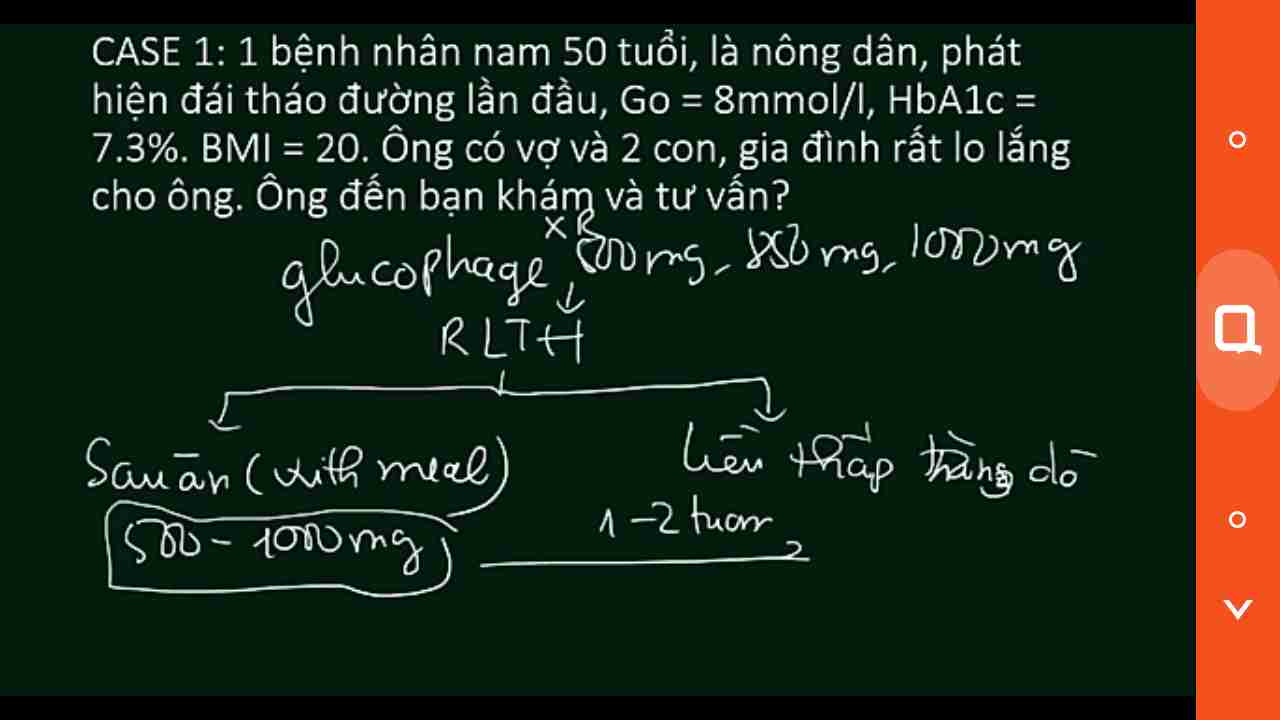 CASE 1: 1 bệnh nhân nam 50 tuổi, là nông dân, phát
hiện đái tháo đường lần đầu, Go = 8mmol/l, HbA1c =
7.3%. BMI = 20. Ông có vợ và 2 con, gia đình rất lo lắng
cho ông. Ông đến bạn khám và tư vấn?
XR
glucophage 500mg, 850mg, 1000mg
RLTH
Sau ăn (with meal)
liều thấp tăng dò
500 - 1000mg
1-2 tuần